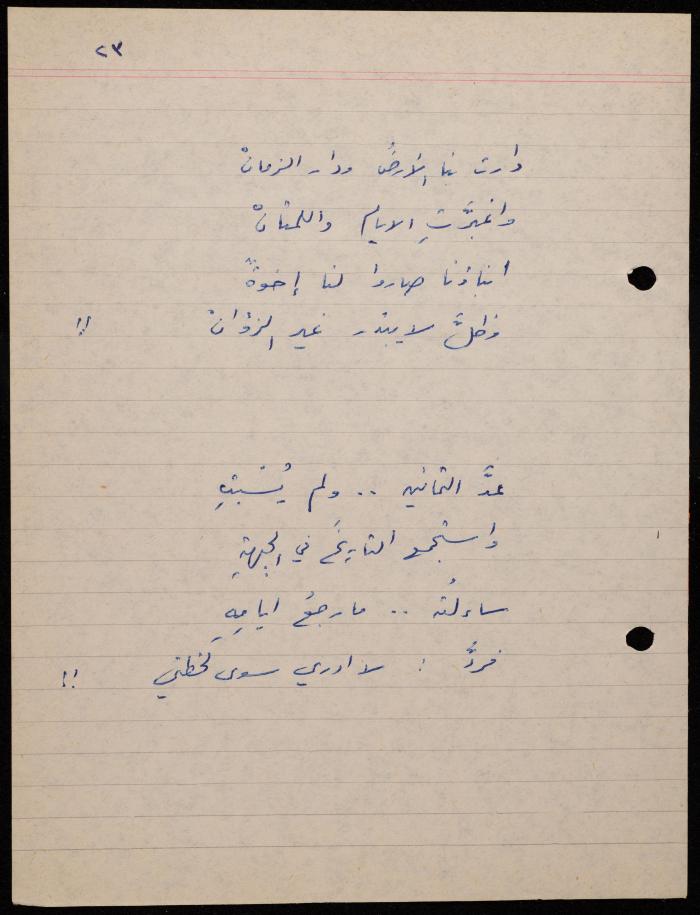 ٢٣
دارت بنا الأرضُ ودار الزمانْ
واغبرَّتِ الايام واللمتانْ
ابناؤنا صاروا لنا إخوةً
وظلَّ لا يبتدر غير الزؤانْ !!
عدَّ الثمانين .. ولم يُسْبَتِ
واستجمع التاريخَ في الجبهةِ
ساءلتُه .. ما رجعُ ايامِهِ
فردَّ : لا ادري سوى لحظتي !!